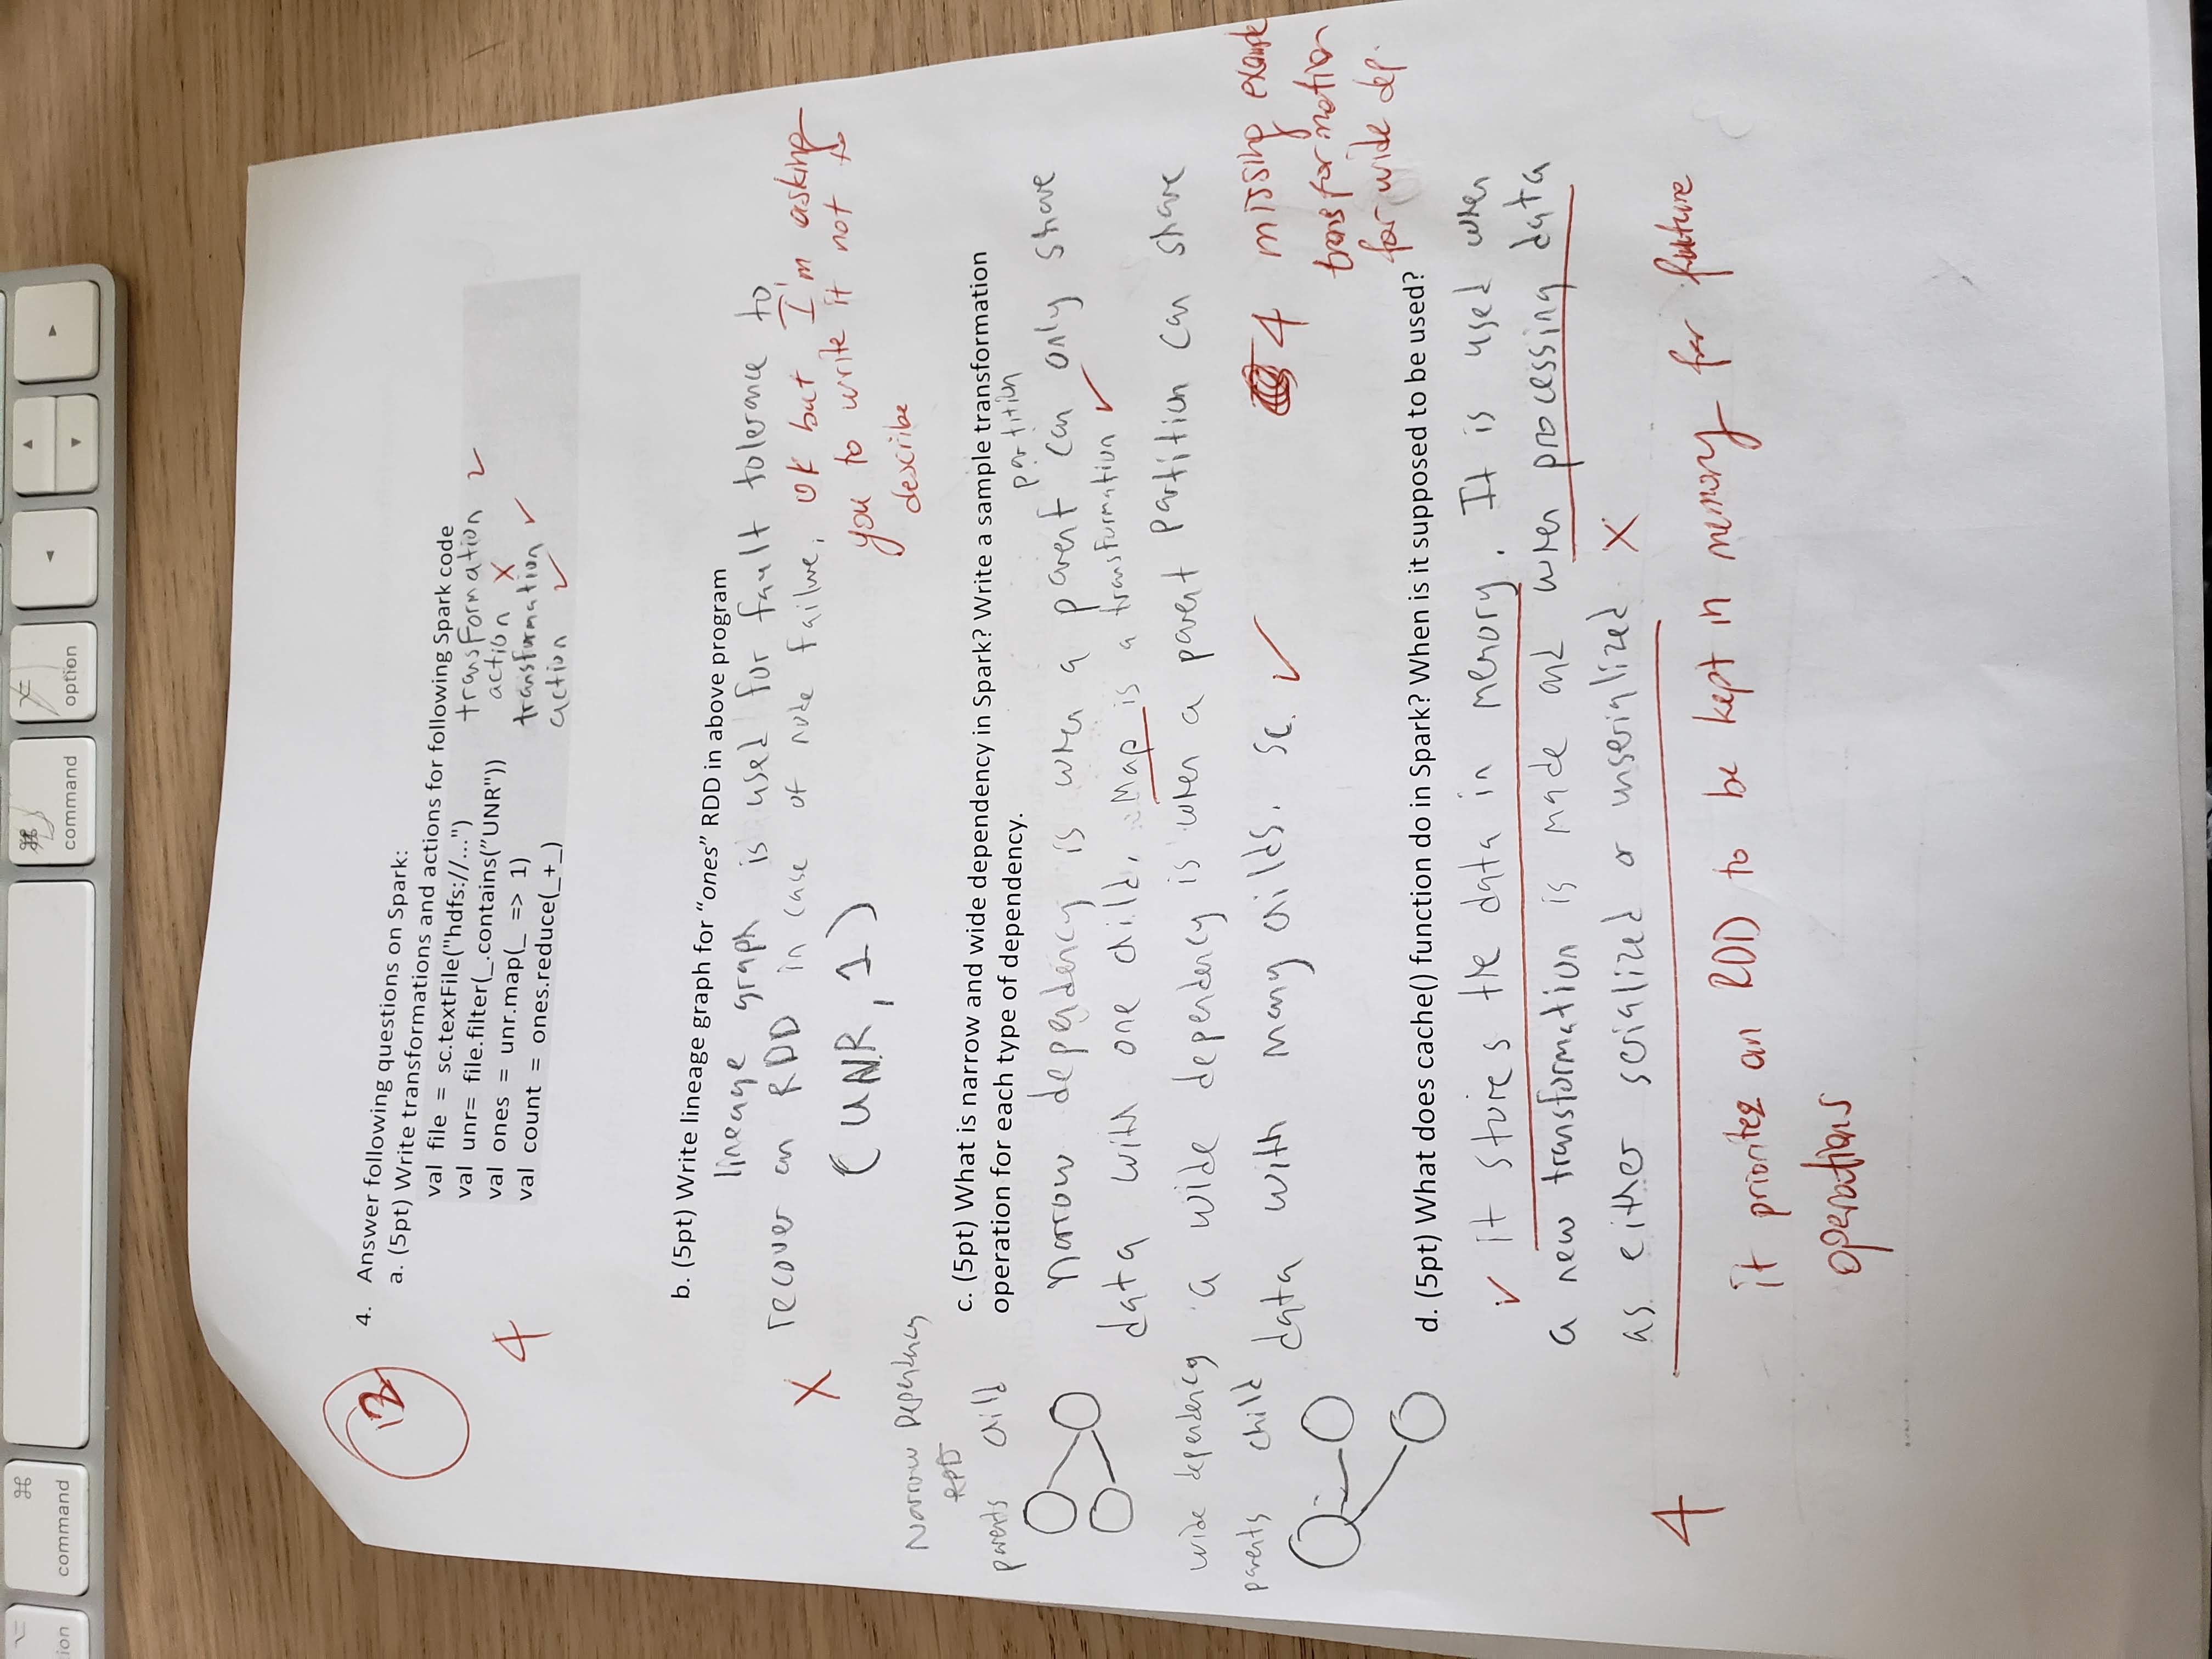 ion
⌘
command
⌘
command
option
12
4. Answer following questions on Spark:
a. (5pt) Write transformations and actions for following Spark code
val file = sc.textFile("hdfs://...") transformation ✓
val unr= file.filter(_.contains(”UNR")) action X
val ones = unr.map(_ => 1) transformation ✓
val count = ones.reduce(_+_) action ✓
4
b. (5pt) Write lineage graph for “ones” RDD in above program
lineage graph is used for fault tolerance to
recover an RDD in case of node failure, ok but I'm asking
X
you to write it not to
describe
(UNR, 1)
Narrow Dependency
RDD
parents child
c. (5pt) What is narrow and wide dependency in Spark? Write a sample transformation
operation for each type of dependency.
partition
Narrow dependency is when a parent can only share
data with one child. Map is a transformation ✓
wide dependency
parents child
a wide dependency is when a parent partition can share
data with many childs. sc. ✓
4 missing example
transformation
for wide dep.
d. (5pt) What does cache() function do in Spark? When is it supposed to be used?
✓ it stores the data in memory. It is used when
a new transformation is made and when processing data
as either serialized or unserialized X
4
it priorites an RDD to be kept in memory for future
operations